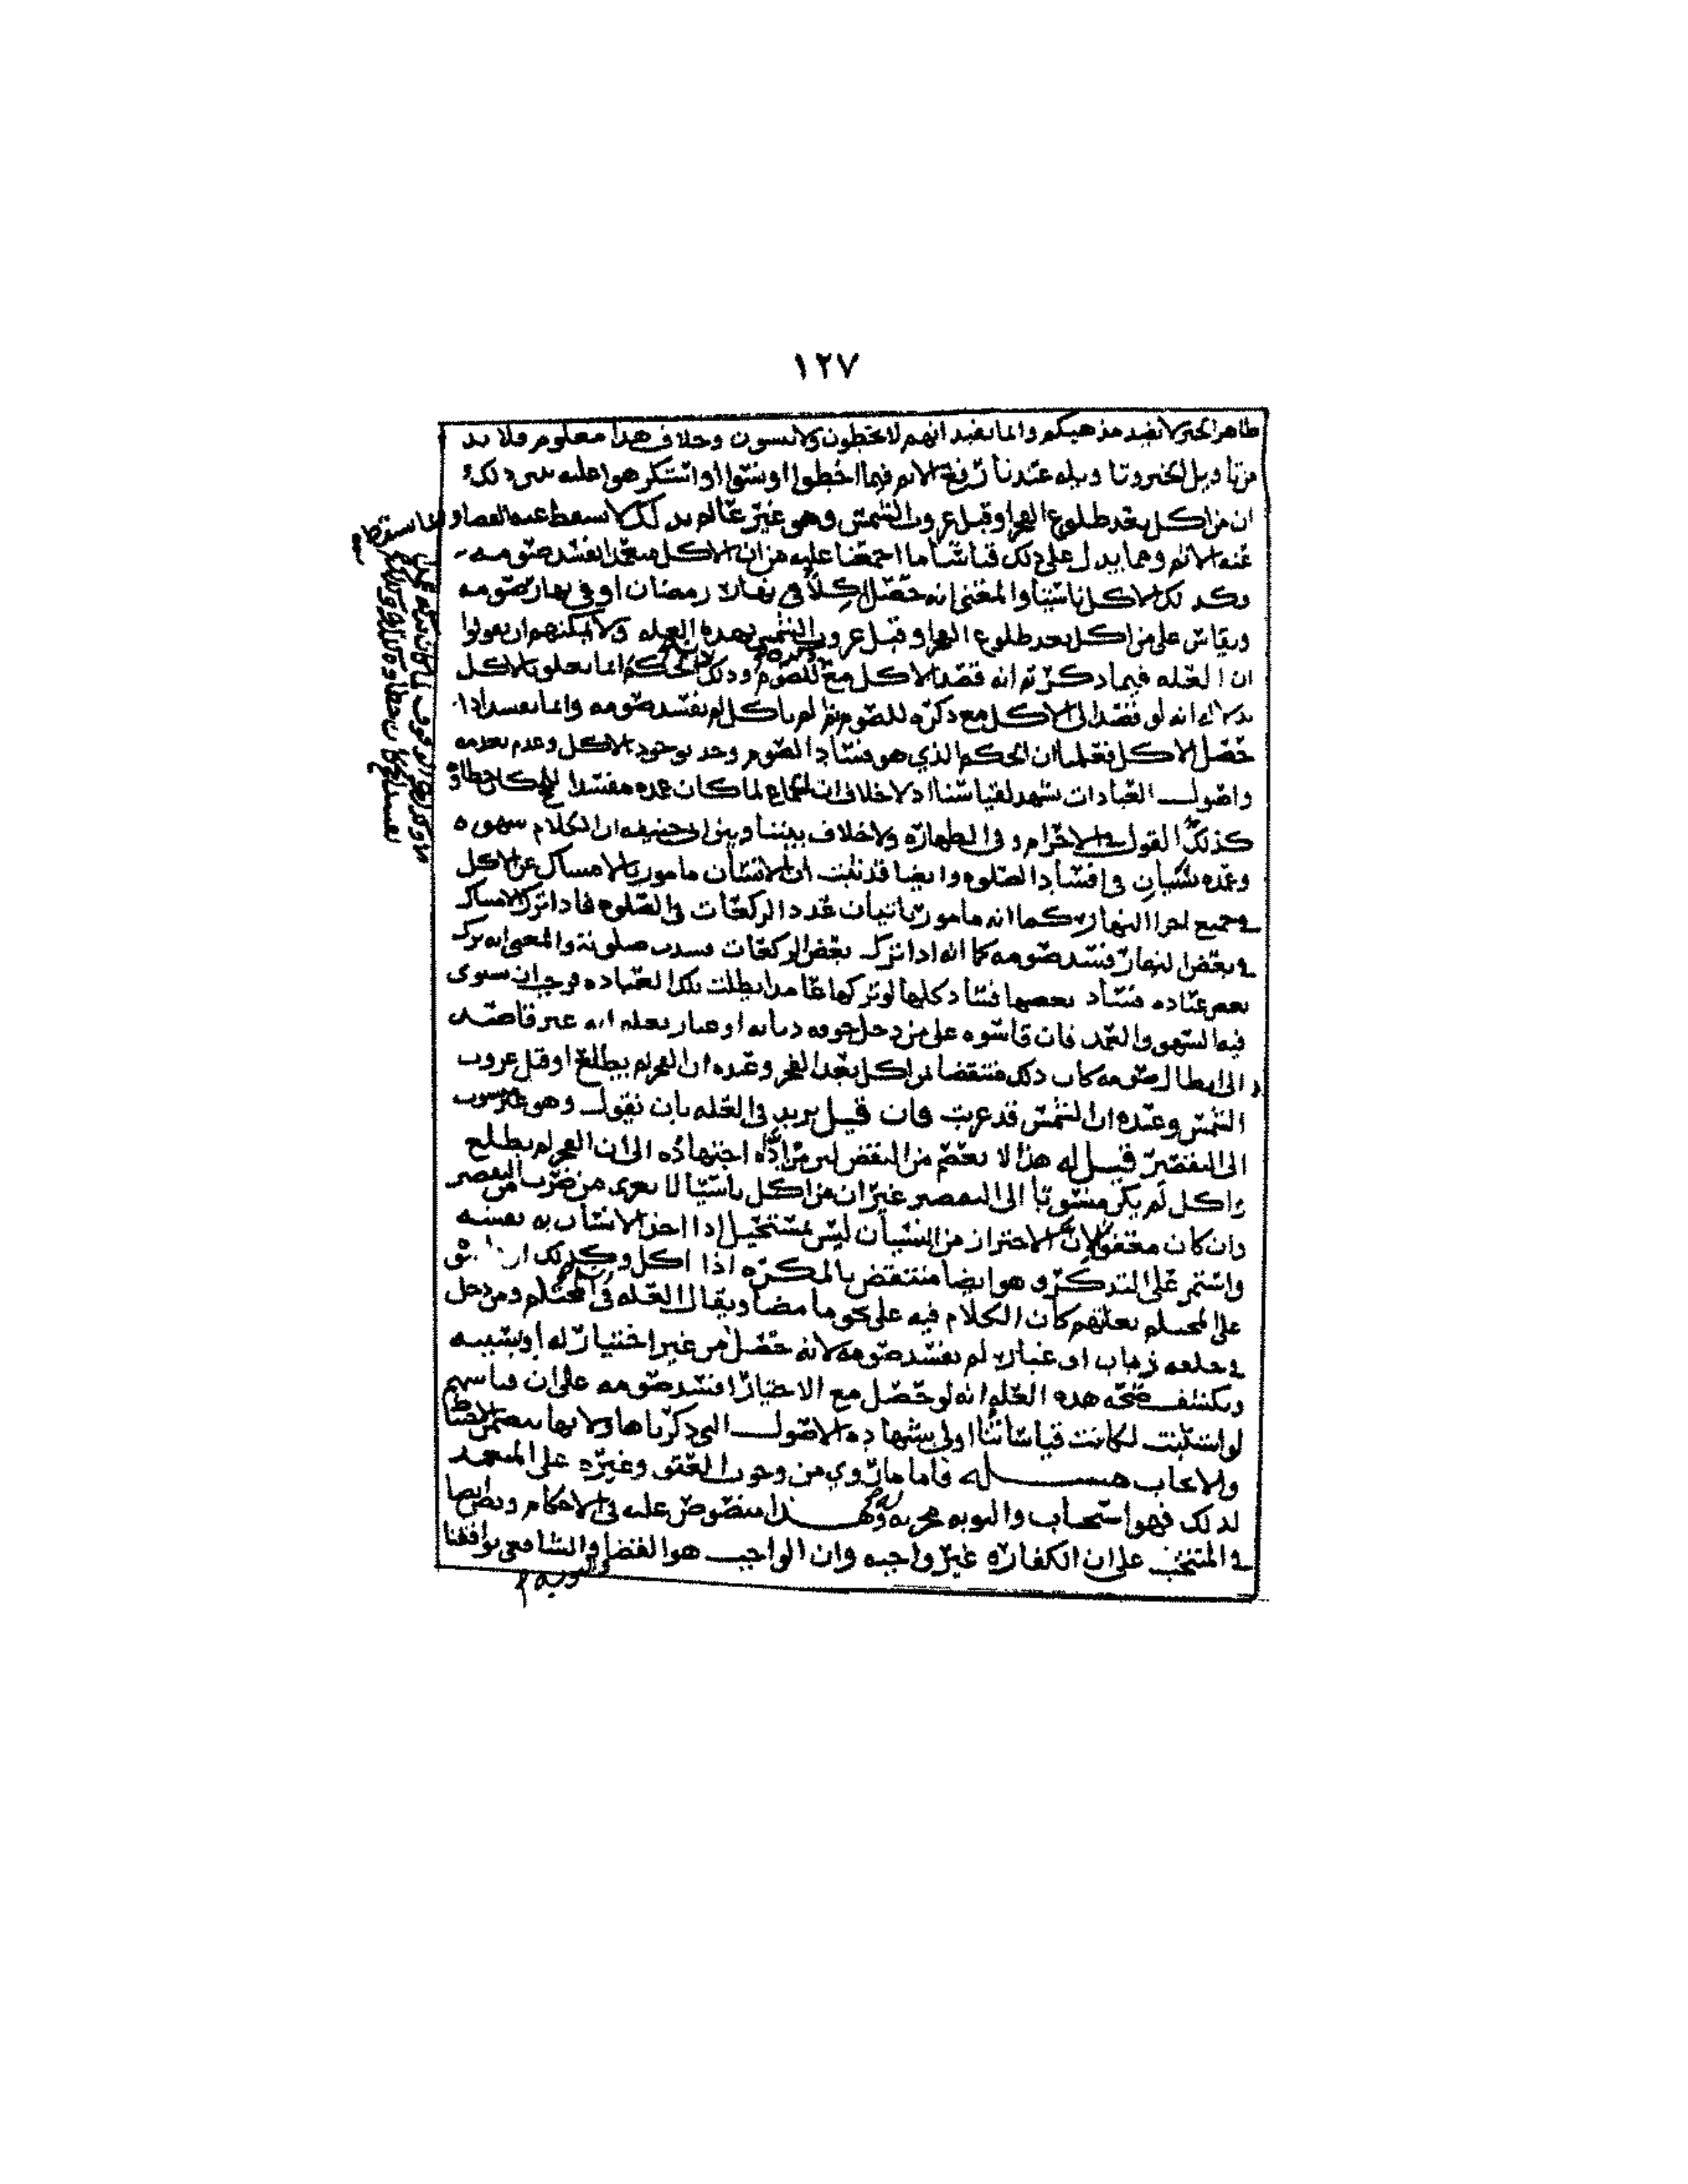 ١٢٧
ظاهر الخبر لا يفيد مذهبكم وانما يفيد انهم لا يخطون ولا ينسون وخلاف هذا معلوم فلا بد
من تاويل الخبر وتاويله عندنا رفع الاثم فيما اخطوا او نسوا او استكرهوا عليه يبين ذلك
ان من اكل بعد طلوع الفجر او قبل غروب الشمس وهو غير عالم بذلك لا يسقط عنه القضا وانما سقط
عنه الاثم ومما يدل على ذلك قياسا ما اجمعنا عليه من ان الاكل متعمدا يفسد صومه
فكذلك الاكل ناسيا والمعنى انه حصل اكلا في نهار رمضان او في نهار صومه
ويقاس على من اكل بعد طلوع الفجر او قبل غروب الشمس بهذه العله ولا يمكنهم ان يقولوا
ان العله فيما ذكرتم انه قصد الاكل مع ذكره للصوم وذلك لان الحكم انما يتعلق بالاكل
بدلاله انه لو قصد الى الاكل مع ذكره للصوم ثم لم ياكل لم يفسد صومه وانما يفسد اذا
حصل الاكل فعلمنا ان الحكم الذي هو فساد الصوم وجد بوجود الاكل وعدم بعدمه
واصول العبادات تشهد لقياسنا اذ لا خلاف ان الجماع لما كان عمده مفسدا للحج كان خطاؤه
كذلك القول في الاحرام وفي الطهاره ولا خلاف بيننا وبين ابي حنيفه ان الكلام سهوه
وعمده سيان في افساد الصلوه وايضا قد ثبت ان الانسان مامور بالامساك عن الاكل
في جميع اجزا النهار كما انه مامور باتيان عدد الركعات في الصلوه فاذا ترك الامساك
في بعض النهار فسد صومه كما انه اذا ترك بعض الركعات فسدت صلوته والمعنى انه ترك
بعض عباده فساد بعضها فساد كلها لو تركها عامدا بطلت تلك العباده فوجب ان يستوى
فيه السهو والعمد فان قاسوه على من دخل جوفه ذبابه او غبار بعله انه غير قاصد
الى ابطال صومه كان ذلك منتقضا بمن اكل بعد الفجر وعنده ان الفجر لم يطلع او قبل غروب
الشمس وعنده ان الشمس قد غربت فان قيل يريد في العله بان نقول وهو غير منسوب
الى التقصير قيل له هذا لا يعصم من النقض لان من اداه اجتهاده الى ان الفجر لم يطلع
واكل لم يكن منسوبا الى التقصير غير ان من اكل ناسيا لا يعرى من ضرب من التقصير
وان كان معفوا لان الاحتراز من النسيان ليس بمستحيل اذا اخذ الانسان به نفسه
واستمر على التذكر وهو ايضا منتقض بالمكره اذا اكل وكذلك ان
على المحتلم بعلتهم كان الكلام فيه على نحو ما مضا ويقال العله في المحتلم ومن دخل
في حلقه ذباب او غبار لم يفسد صومه لانه حصل من غير اختيار له او بسببه
ويكشف صحه هذه العله انه لو حصل مع الاختيار افسد صومه على ان قياسهم
لو استتبت لكانت قياساتنا اولى بشهاده الاصول التي ذكرناها ولانها
والايجاب مسله فاما ما روي من وجوب العتق وغيره على المتعمد
لذلك فهو استحباب والتوبه مجزيه له وهذا منصوص عليه في الاحكام ونص ايضا
في المنتخب على ان الكفاره غير واجبه وان الواجب هو القضا والتوبه والشافعي يوافقنا